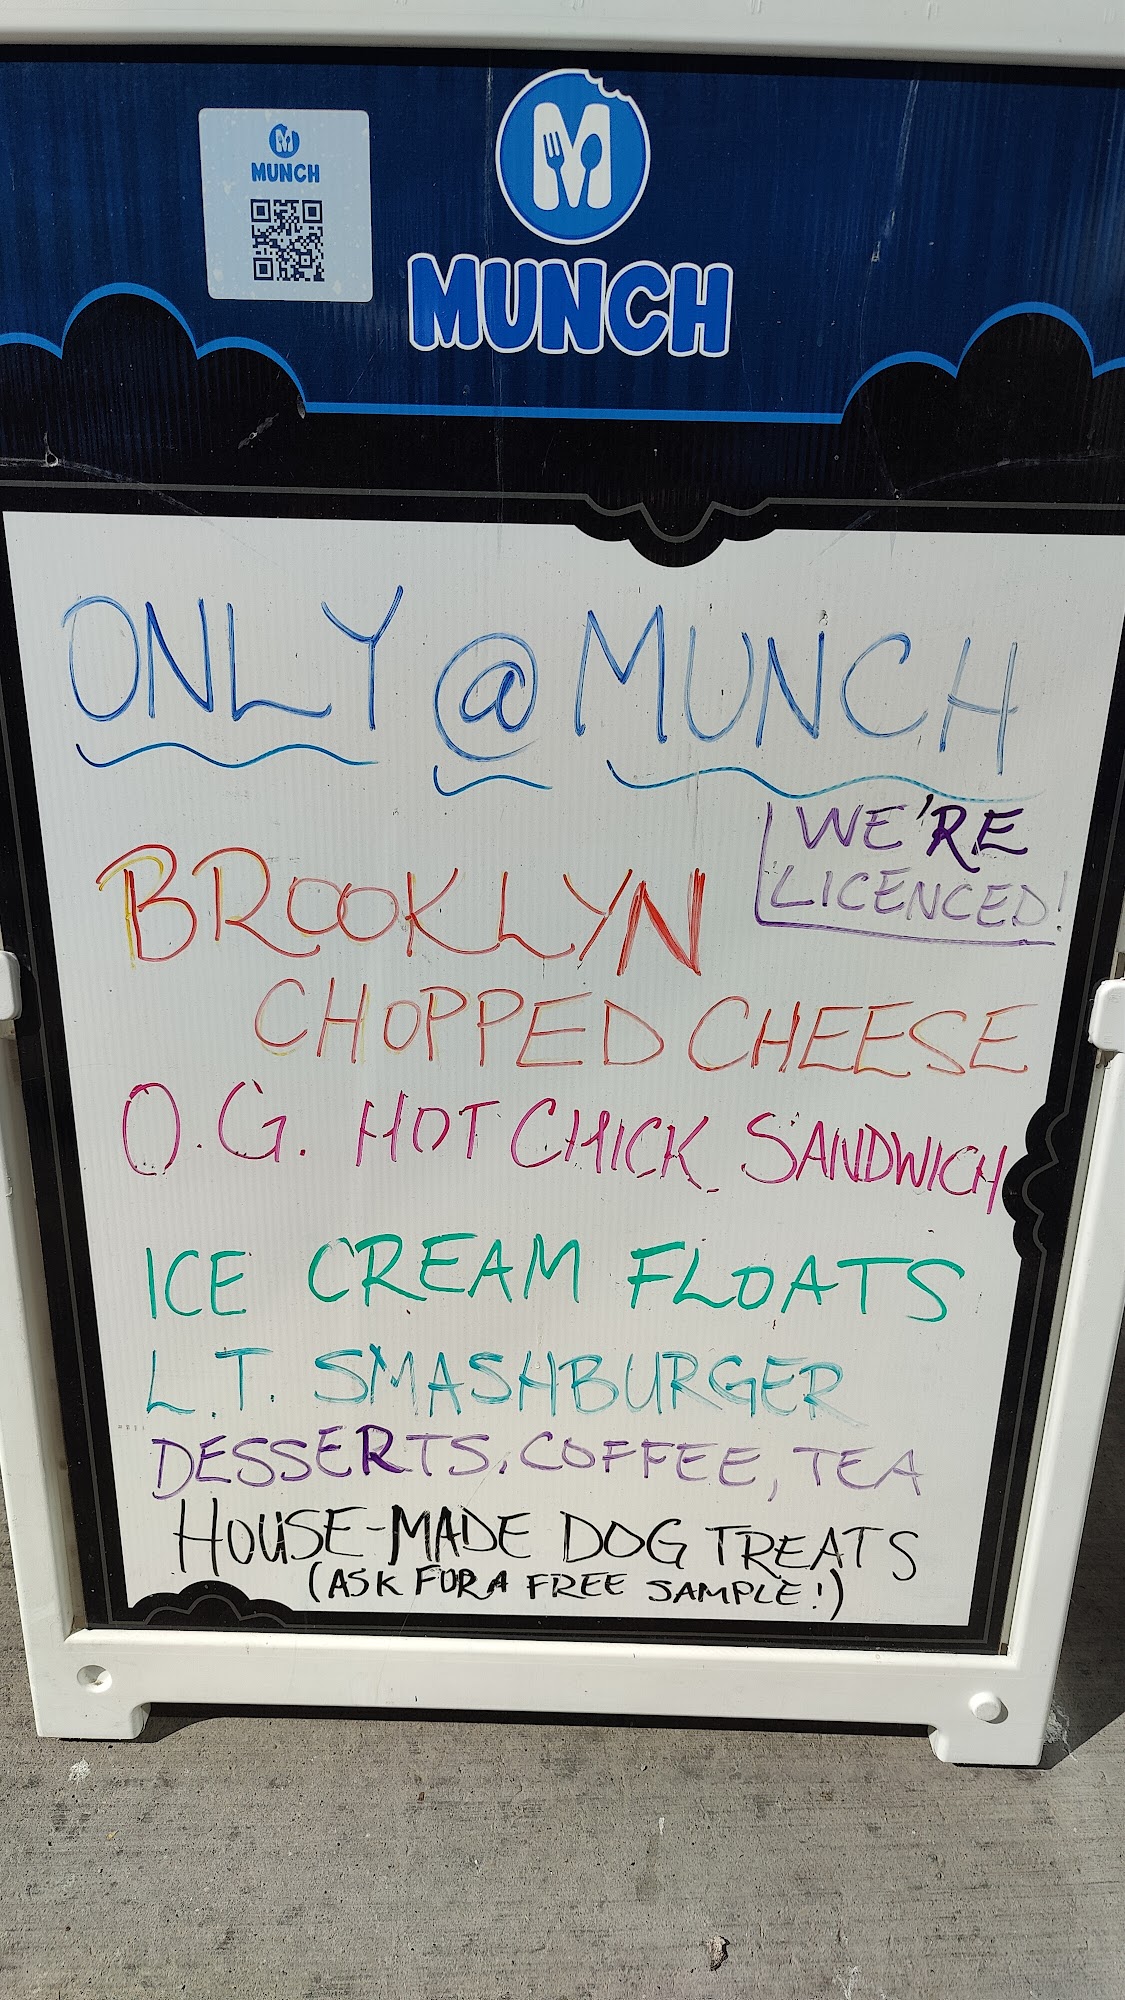 MUNCH
MUNCH
ONLY @ MUNCH
WE'RE
LICENCED!
BROOKLYN
CHOPPED CHEESE
O.G. HOT CHICK SANDWICH
ICE CREAM FLOATS
L.T. SMASHBURGER
DESSERTS, COFFEE, TEA
HOUSE-MADE DOG TREATS
(ASK FOR A FREE SAMPLE!)